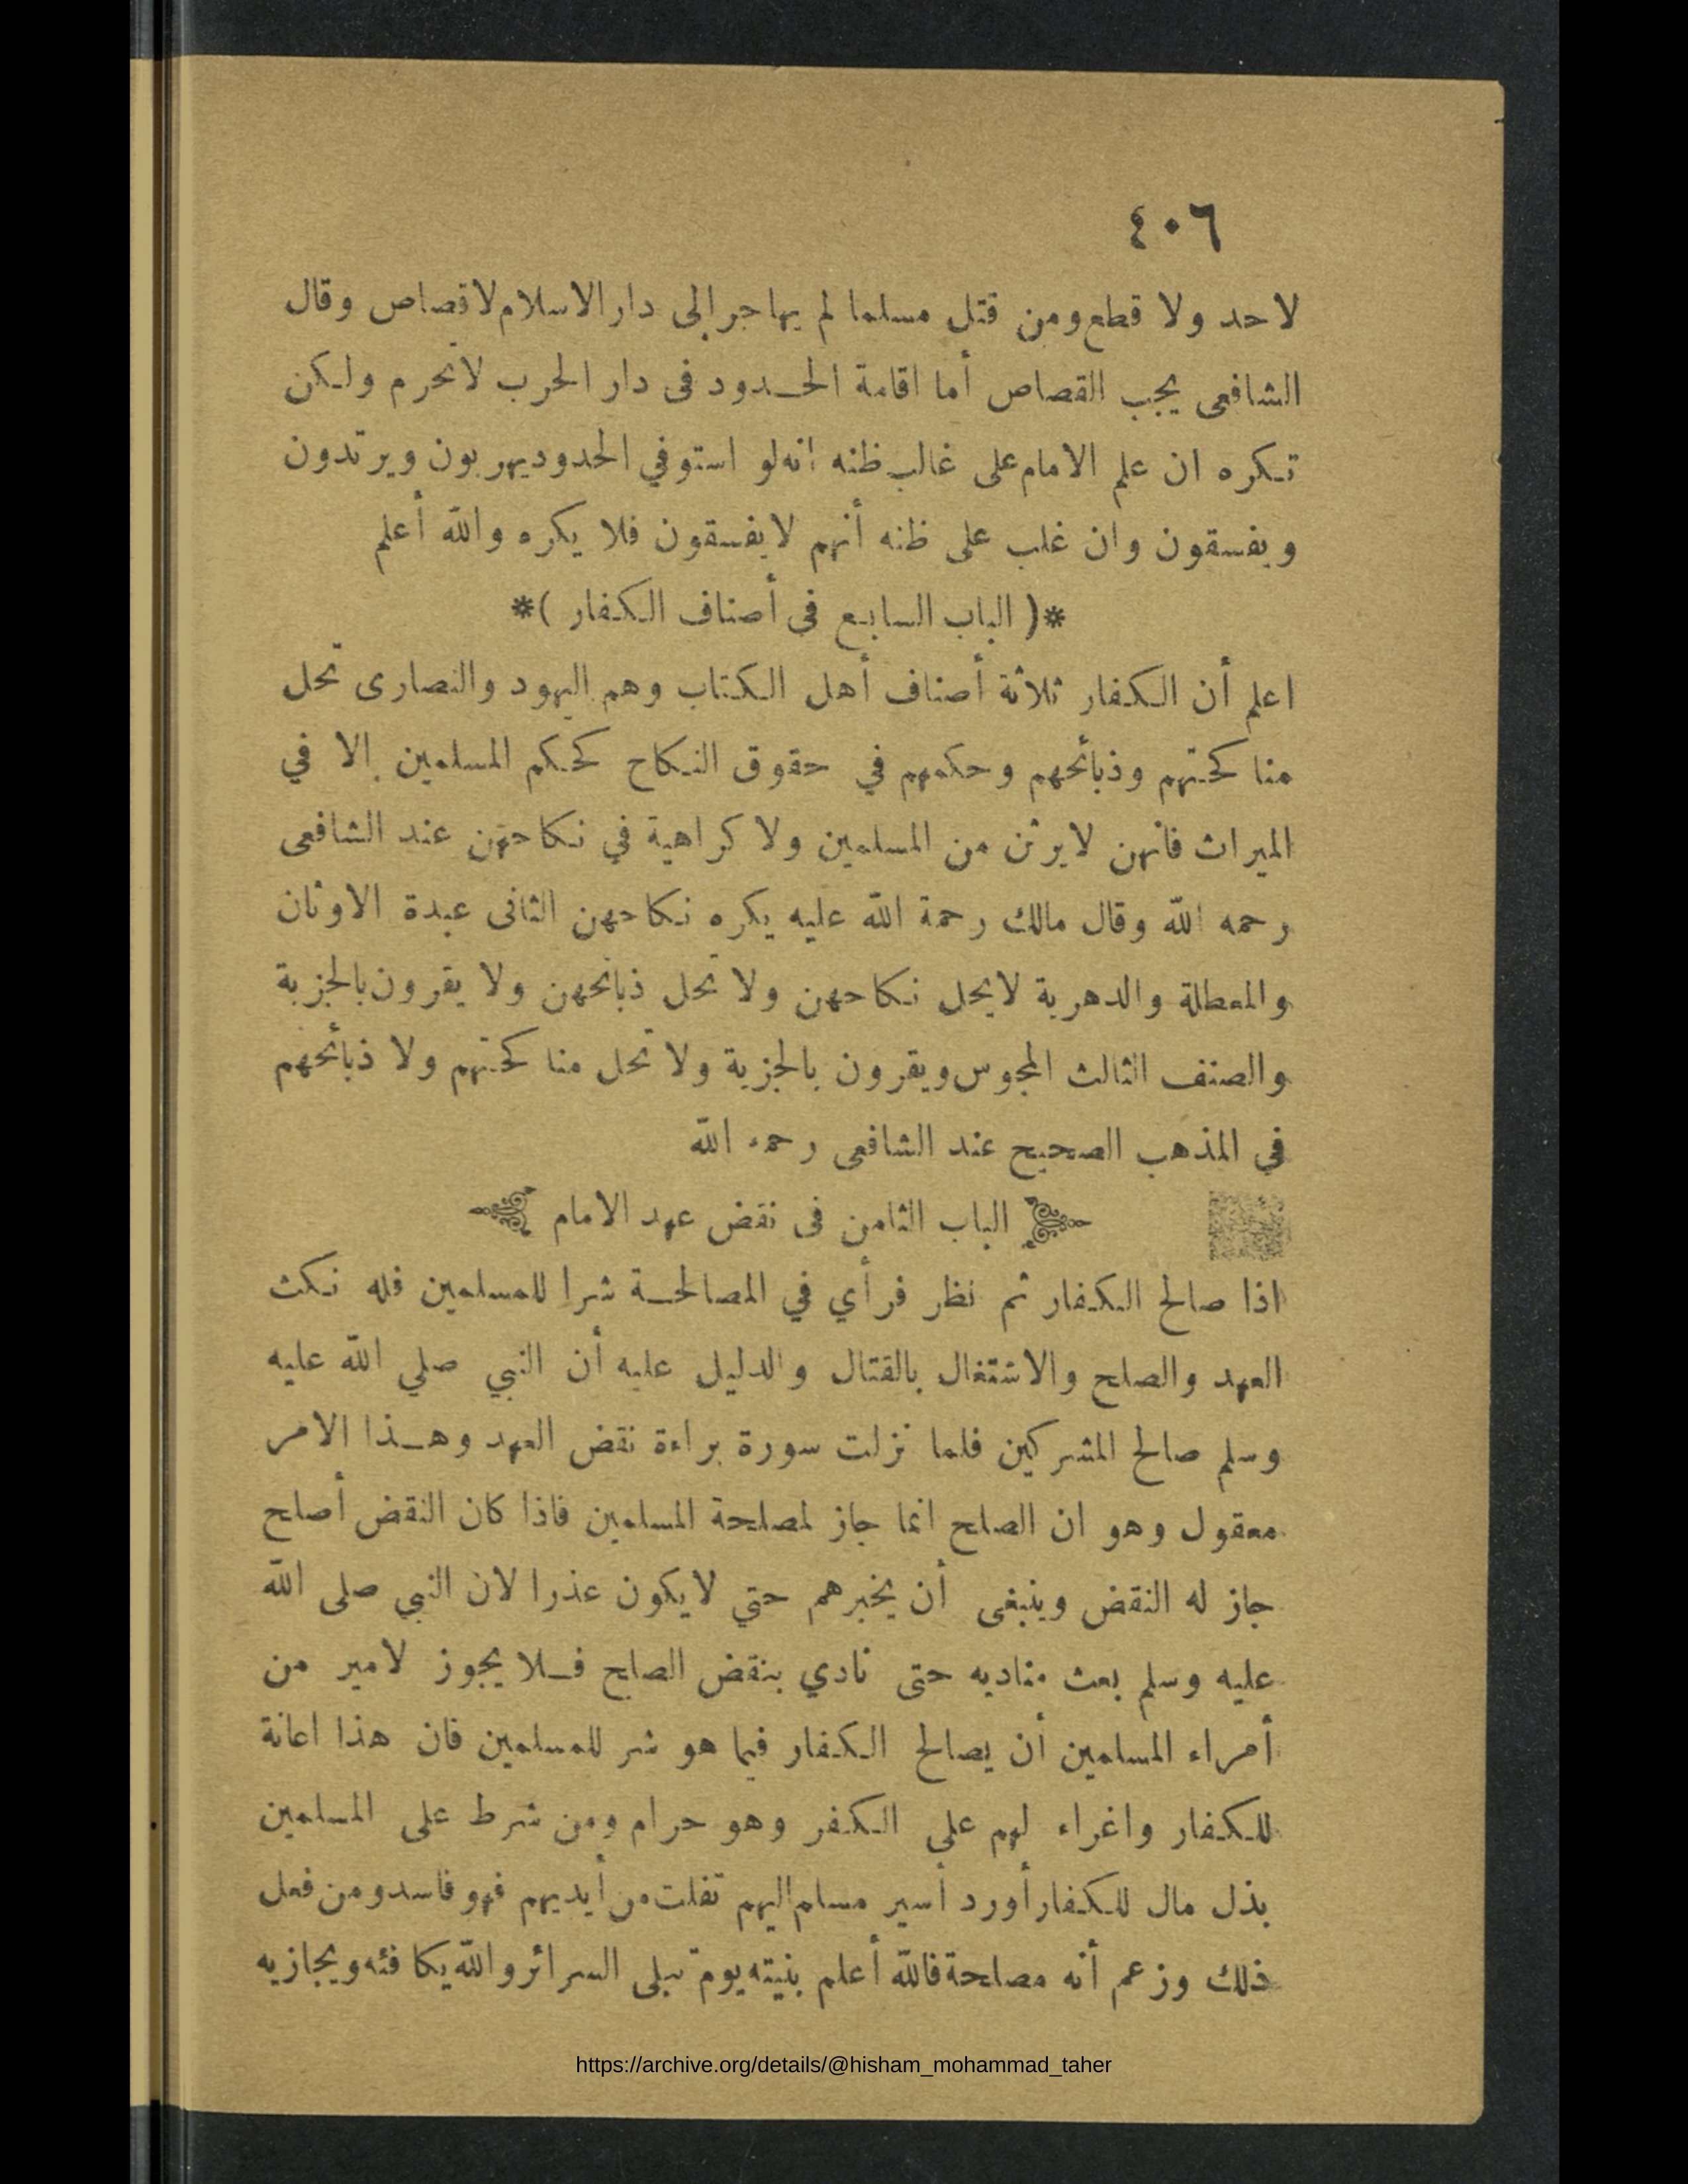 ٤٠٦
لاحد ولا قطع ومن قتل مسلما لم يهاجر الى دار الاسلام لاقصاص وقال
الشافعى يجب القصاص أما اقامة الحدود فى دار الحرب لاتحرم ولكن
تكره ان علم الامام على غالب ظنه انه لو استوفي الحدود يهربون ويرتدون
ويفسقون وان غلب على ظنه أنهم لايفسقون فلا يكره والله أعلم
*( الباب السابع فى أصناف الكفار )*
اعلم أن الكفار ثلاثة أصناف أهل الكتاب وهم اليهود والنصارى تحل
مناكحتهم وذبائحهم وحكمهم في حقوق النكاح كحكم المسلمين الا في
الميراث فانهن لايرثن من المسلمين ولا كراهية في نكاحهن عند الشافعى
رحمه الله وقال مالك رحمة الله عليه يكره نكاحهن الثانى عبدة الاوثان
والمعطلة والدهرية لايحل نكاحهن ولا تحل ذبائحهن ولا يقرون بالجزية
والصنف الثالث المجوس ويقرون بالجزية ولا تحل مناكحتهم ولا ذبائحهم
في المذهب الصحيح عند الشافعى رحمه الله
الباب الثامن فى نقض عهد الامام
اذا صالح الكفار ثم نظر فرأي في المصالحة شرا للمسلمين فله نكث
العهد والصلح والاشتغال بالقتال والدليل عليه أن النبي صلي الله عليه
وسلم صالح المشركين فلما نزلت سورة براءة نقض العهد وهذا الامر
معقول وهو ان الصلح انما جاز لمصلحة المسلمين فاذا كان النقض أصلح
جاز له النقض وينبغى أن يخبرهم حتي لايكون عذرا لان النبي صلى الله
عليه وسلم بعث مناديه حتى نادي بنقض الصلح فلا يجوز لامير من
أمراء المسلمين أن يصالح الكفار فيما هو شر للمسلمين فان هذا اعانة
للكفار واغراء لهم علي الكفر وهو حرام ومن شرط على المسلمين
بذل مال للكفار أورد أسير مسلم اليهم تفلت من أيديهم فهو فاسد ومن فعل
ذلك وزعم أنه مصلحة فالله أعلم بنيته يوم تبلى السرائر والله يكافئه ويجازيه
https://archive.org/details/@hisham_mohammad_taher